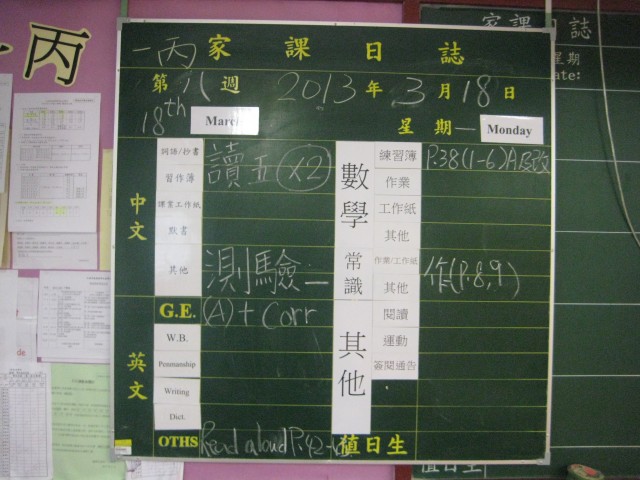 丙
一丙 家課日誌
第八週 2013年3月18日
18th March 星期一 Monday
中文
詞語/抄書 讀五 ×2
習作簿
課業工作紙
默書
其他 測驗二
數學
練習簿 P.38(1-6)A及改
作業
工作紙
其他
常識
作業/工作紙 作(P.8,9)
其他
英文
G.E. (A)+Corr
W.B.
Penmanship
Writing
Dict.
OTHS Read aloud P.42
其他
閱讀
運動
簽閱通告
值日生
家課日誌
星期
Date:
值日生